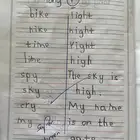 bike light
hike hight
time right
lime high
spy The sky is
sky high.
cry My name
my is on the